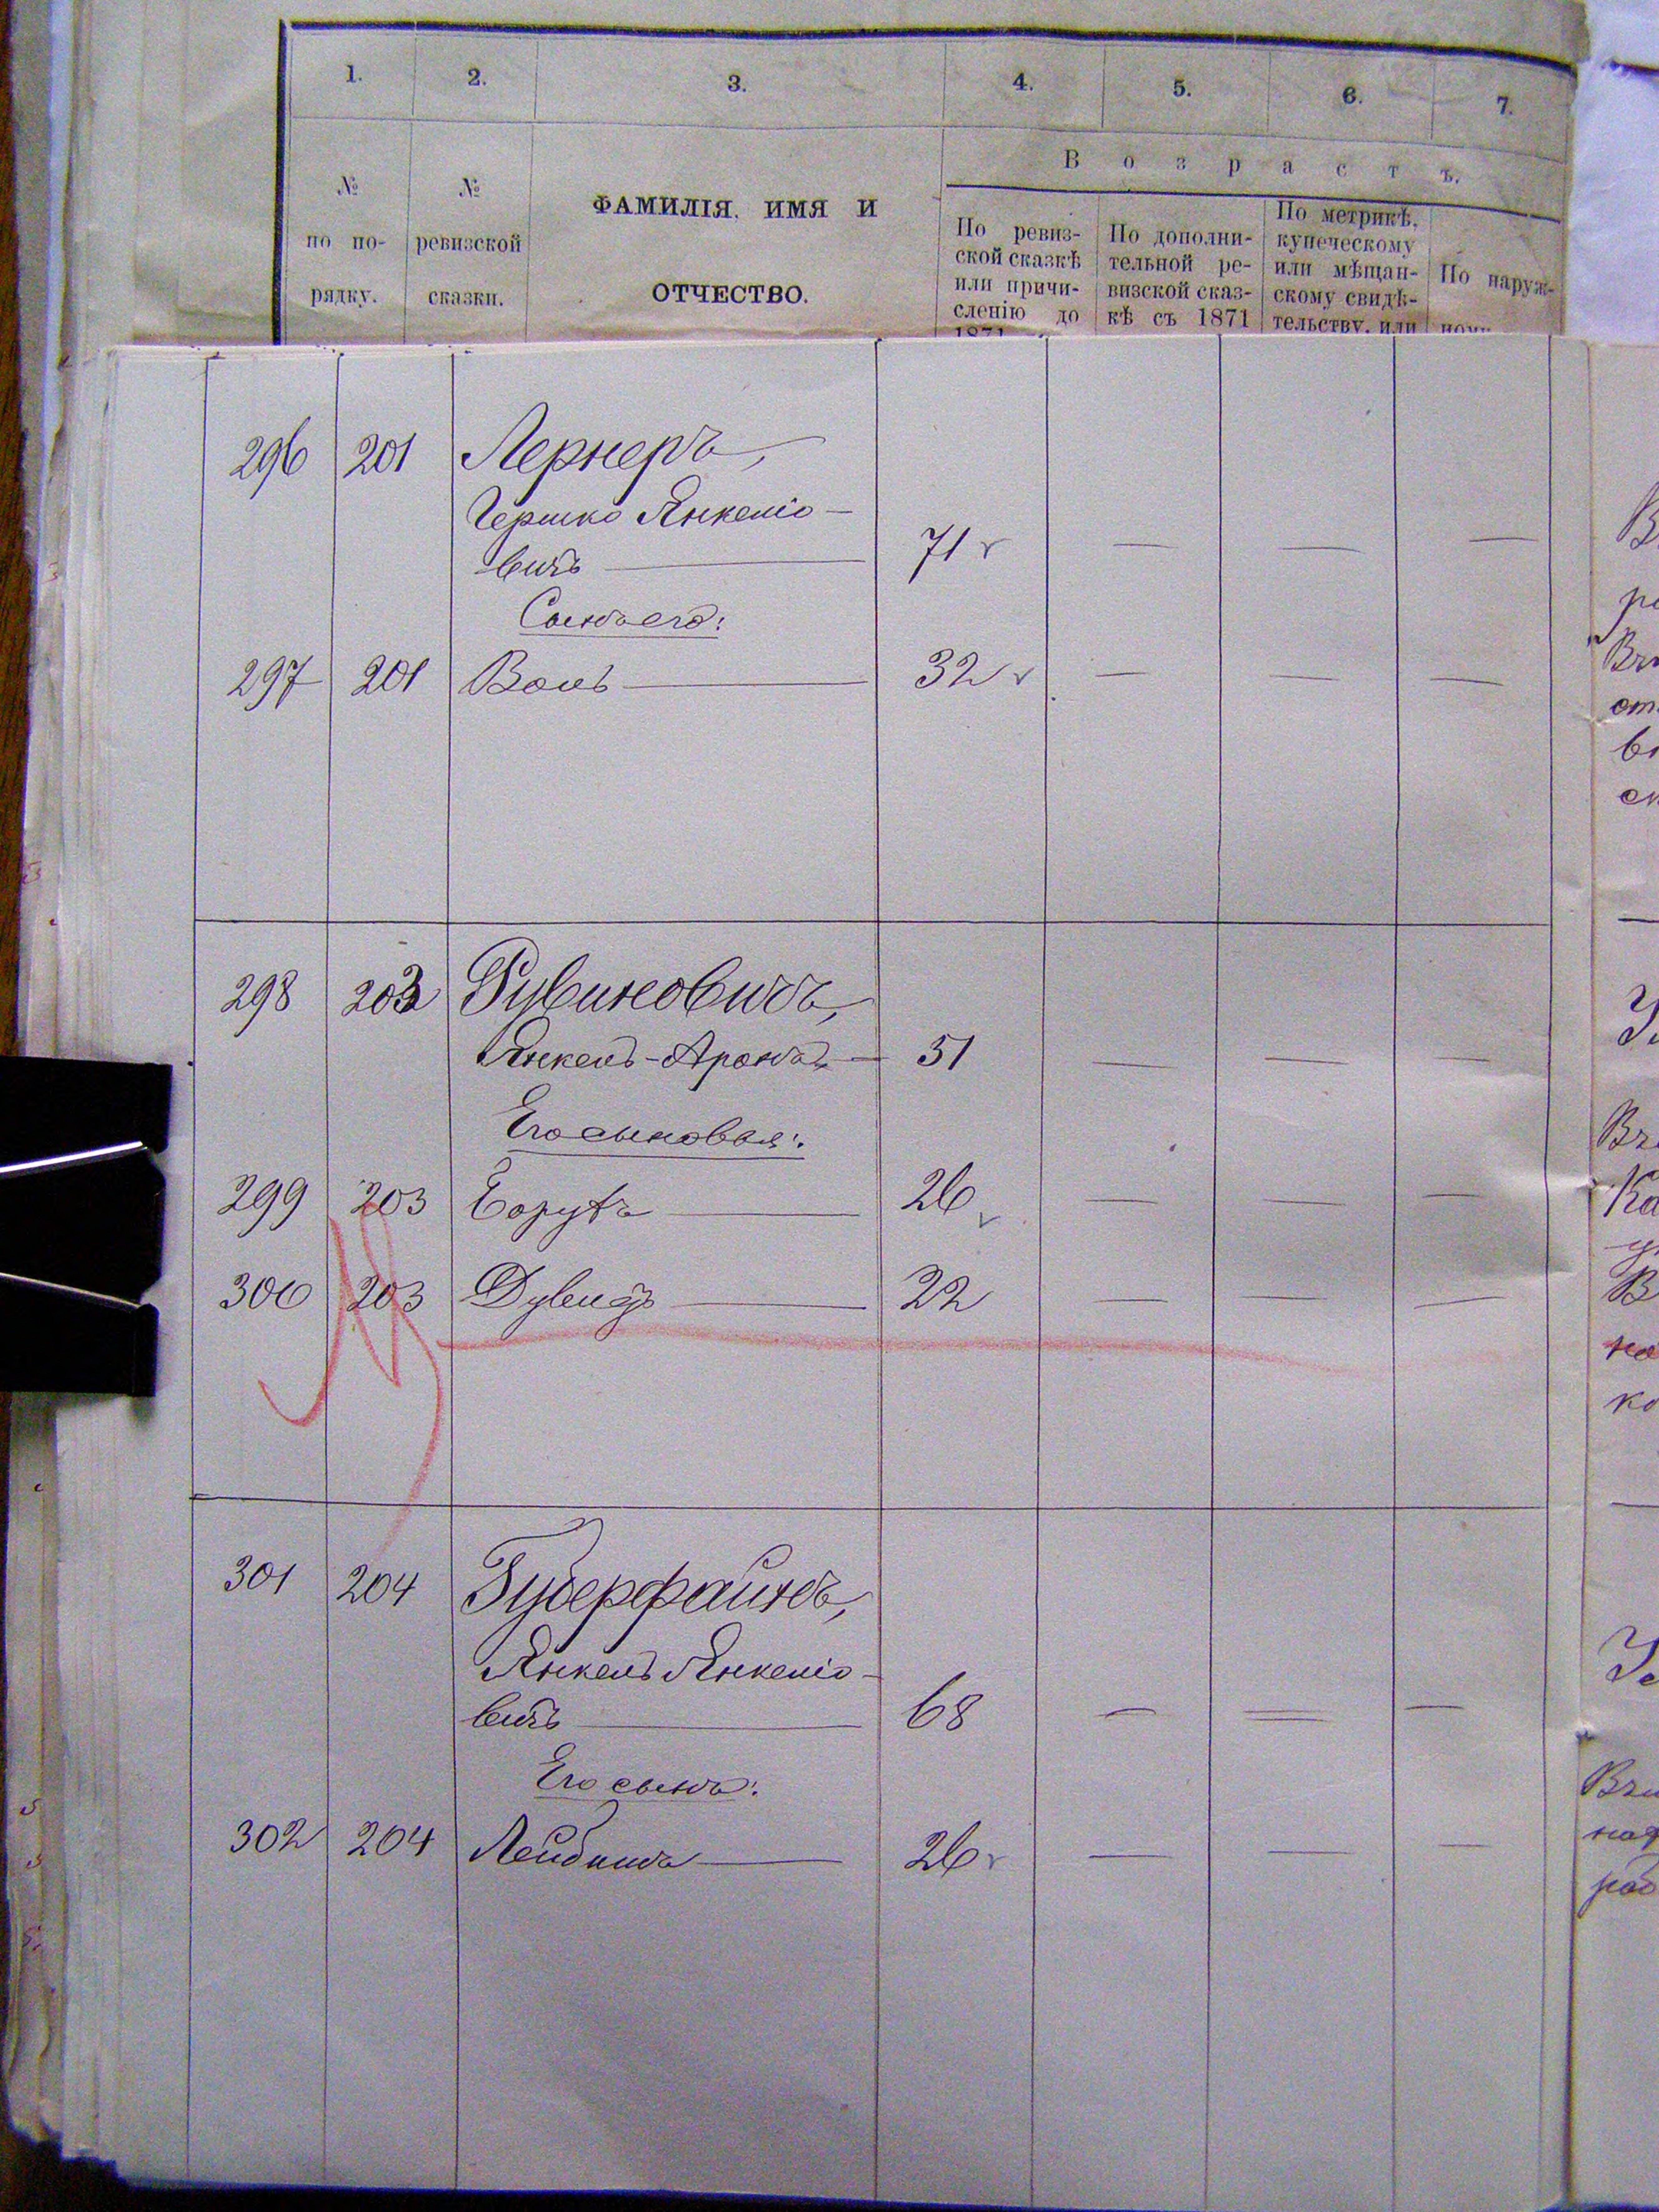 1. 2. 3. 4. 5. 6. 7.
В о з р а с т ъ.
№ по по- рядку.
№ ревизской сказки.
ФАМИЛІЯ, ИМЯ И
ОТЧЕСТВО.
По ревиз-
ской сказкѣ
или причи-
сленію до
1871
По дополни-
тельной ре-
визской сказ-
кѣ съ 1871
По метрикѣ,
купеческому
или мѣщан-
скому свидѣ-
тельству, или
По наруж-
296 201 Лернеръ,
Гершко Янкеліо-
вичъ 71
Сынъ его:
297 201 Воль 32
298 203 Рувиновичъ,
Янкель-Аронъ 51
Его сыновья:
299 203 Борухъ 26
300 203 Дувидъ 22
301 204 Губерфайнъ,
Янкель Янкеліо-
вичъ 68
Его сынъ:
302 204 Лейбишъ 26